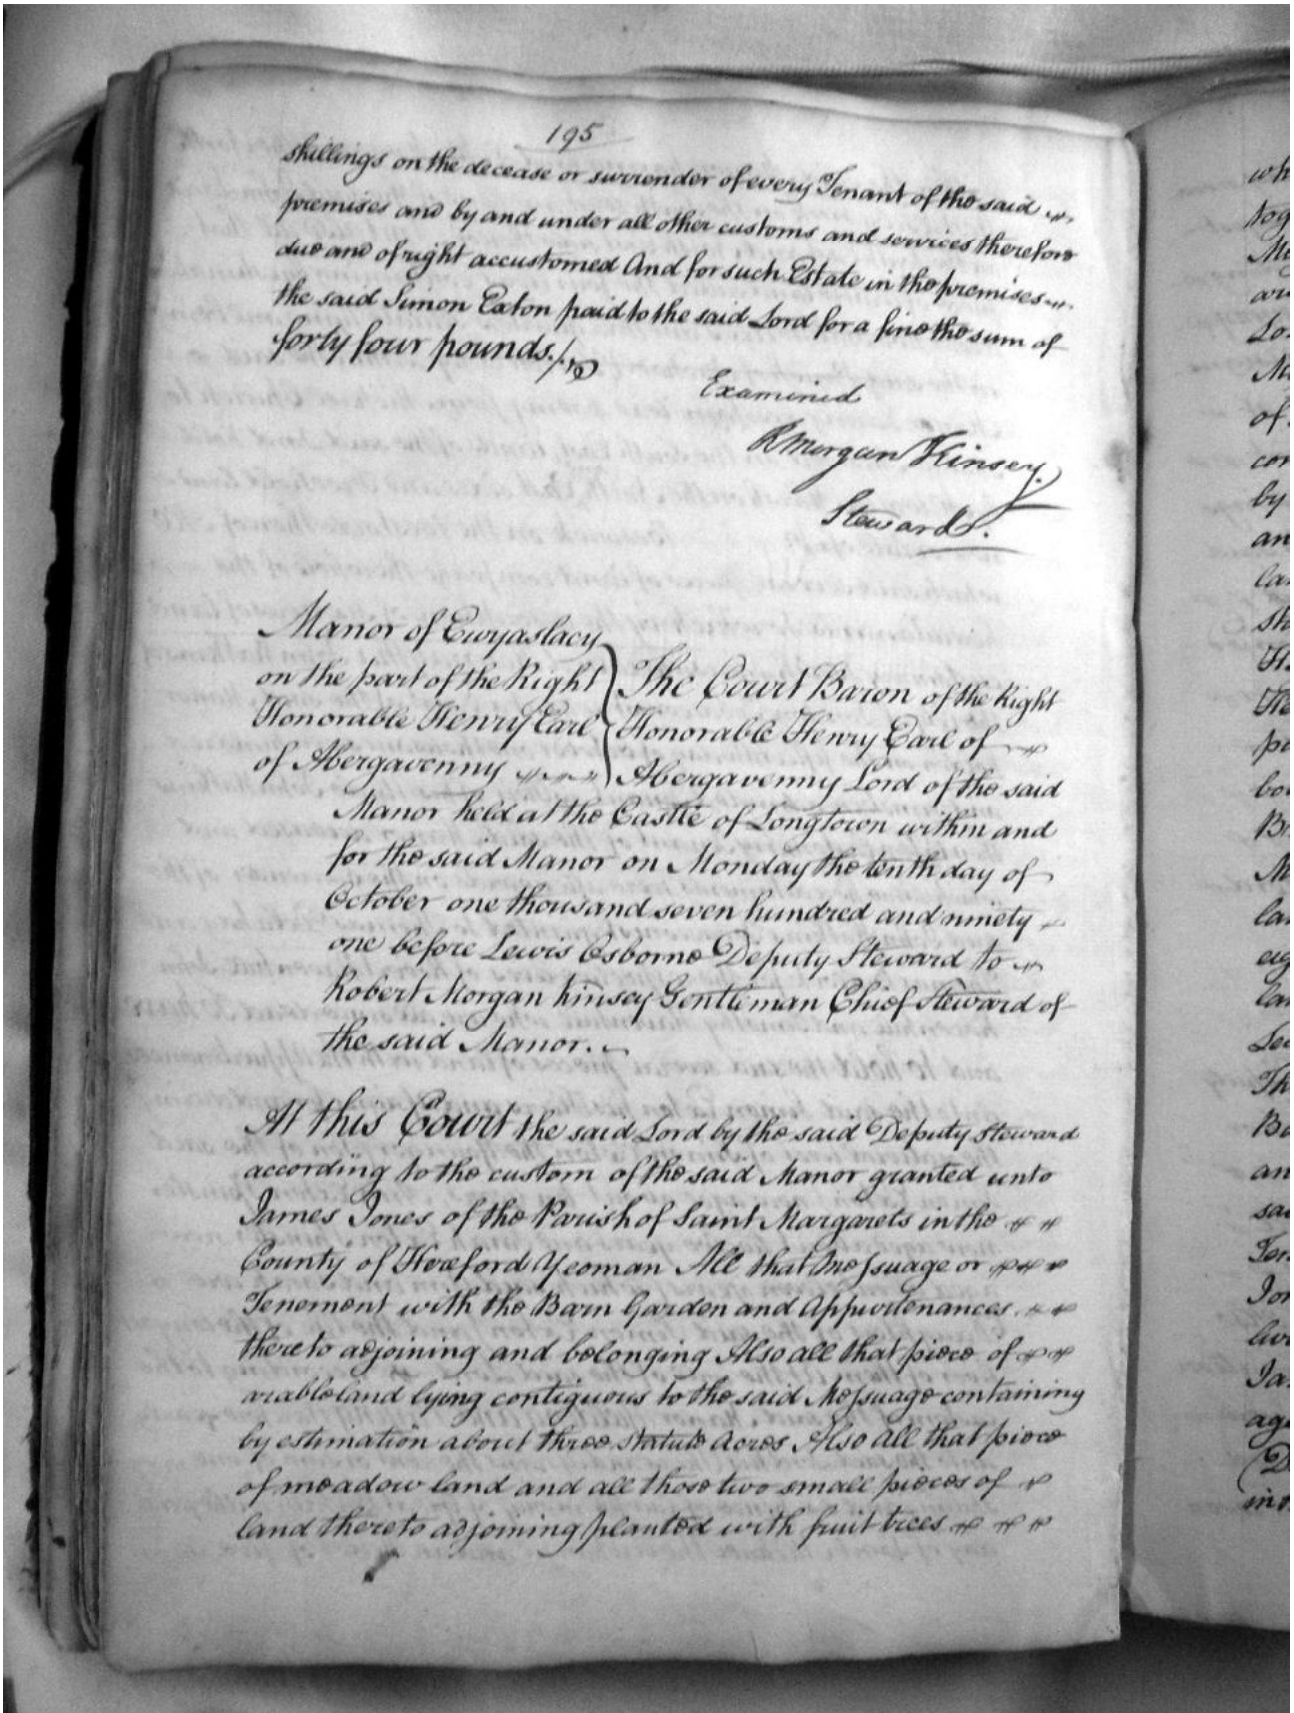 195
shillings on the decease or surrender of every Tenant of the said
premises and by and under all other customs and services therefore
due and of right accustomed And for such Estate in the premises
the said Simon Exton paid to the said Lord for a fine the sum of
forty four pounds./.
Examined
R Morgan Kinsey
Steward.
Manor of Ewyaslacy
on the part of the Right
Honorable Henry Earl
of Abergavenny
The Court Baron of the Right
Honorable Henry Earl of
Abergavenny Lord of the said
Manor held at the Castle of Longtown within and
for the said Manor on Monday the tenth day of
October one thousand seven hundred and ninety
one before Lewis Osborne Deputy Steward to
Robert Morgan Kinsey Gentleman Chief Steward of
the said Manor.
At this Court the said Lord by the said Deputy Steward
according to the custom of the said Manor granted unto
James Jones of the Parish of Saint Margarets in the
County of Hereford Yeoman All that Messuage or
Tenement with the Barn Garden and Appurtenances
thereto adjoining and belonging Also all that piece of
arable land lying contiguous to the said Messuage containing
by estimation about three statute Acres Also all that piece
of meadow land and all those two small pieces of
land thereto adjoining planted with fruit trees